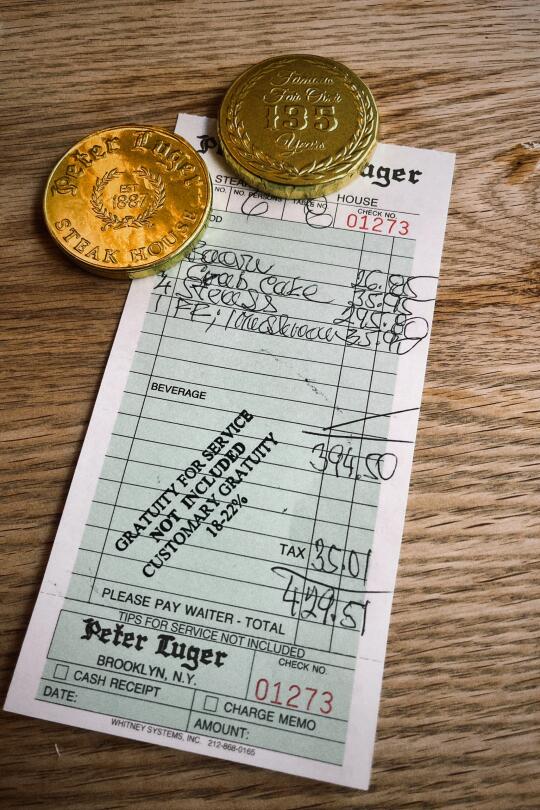 Famous
For Over
135
Years
Peter Luger
EST.
1887
STEAK HOUSE
P uger
STEA HOUSE
NO. NO. PERSONS TABLE NO. CHECK NO.
6 8 01273
OOD
Bacon 26.85
Crab Cake 35.95
4 Steaks 295.80
1 FF, 35.80
BEVERAGE
394.50
GRATUITY FOR SERVICE
NOT INCLUDED
CUSTOMARY GRATUITY
18-22%
TAX 35.01
429.51
PLEASE PAY WAITER - TOTAL
TIPS FOR SERVICE NOT INCLUDED
Peter Luger
BROOKLYN, N.Y.
CHECK NO.
01273
CASH RECEIPT
CHARGE MEMO
DATE:
AMOUNT:
WHITNEY SYSTEMS, INC. 212-868-0165